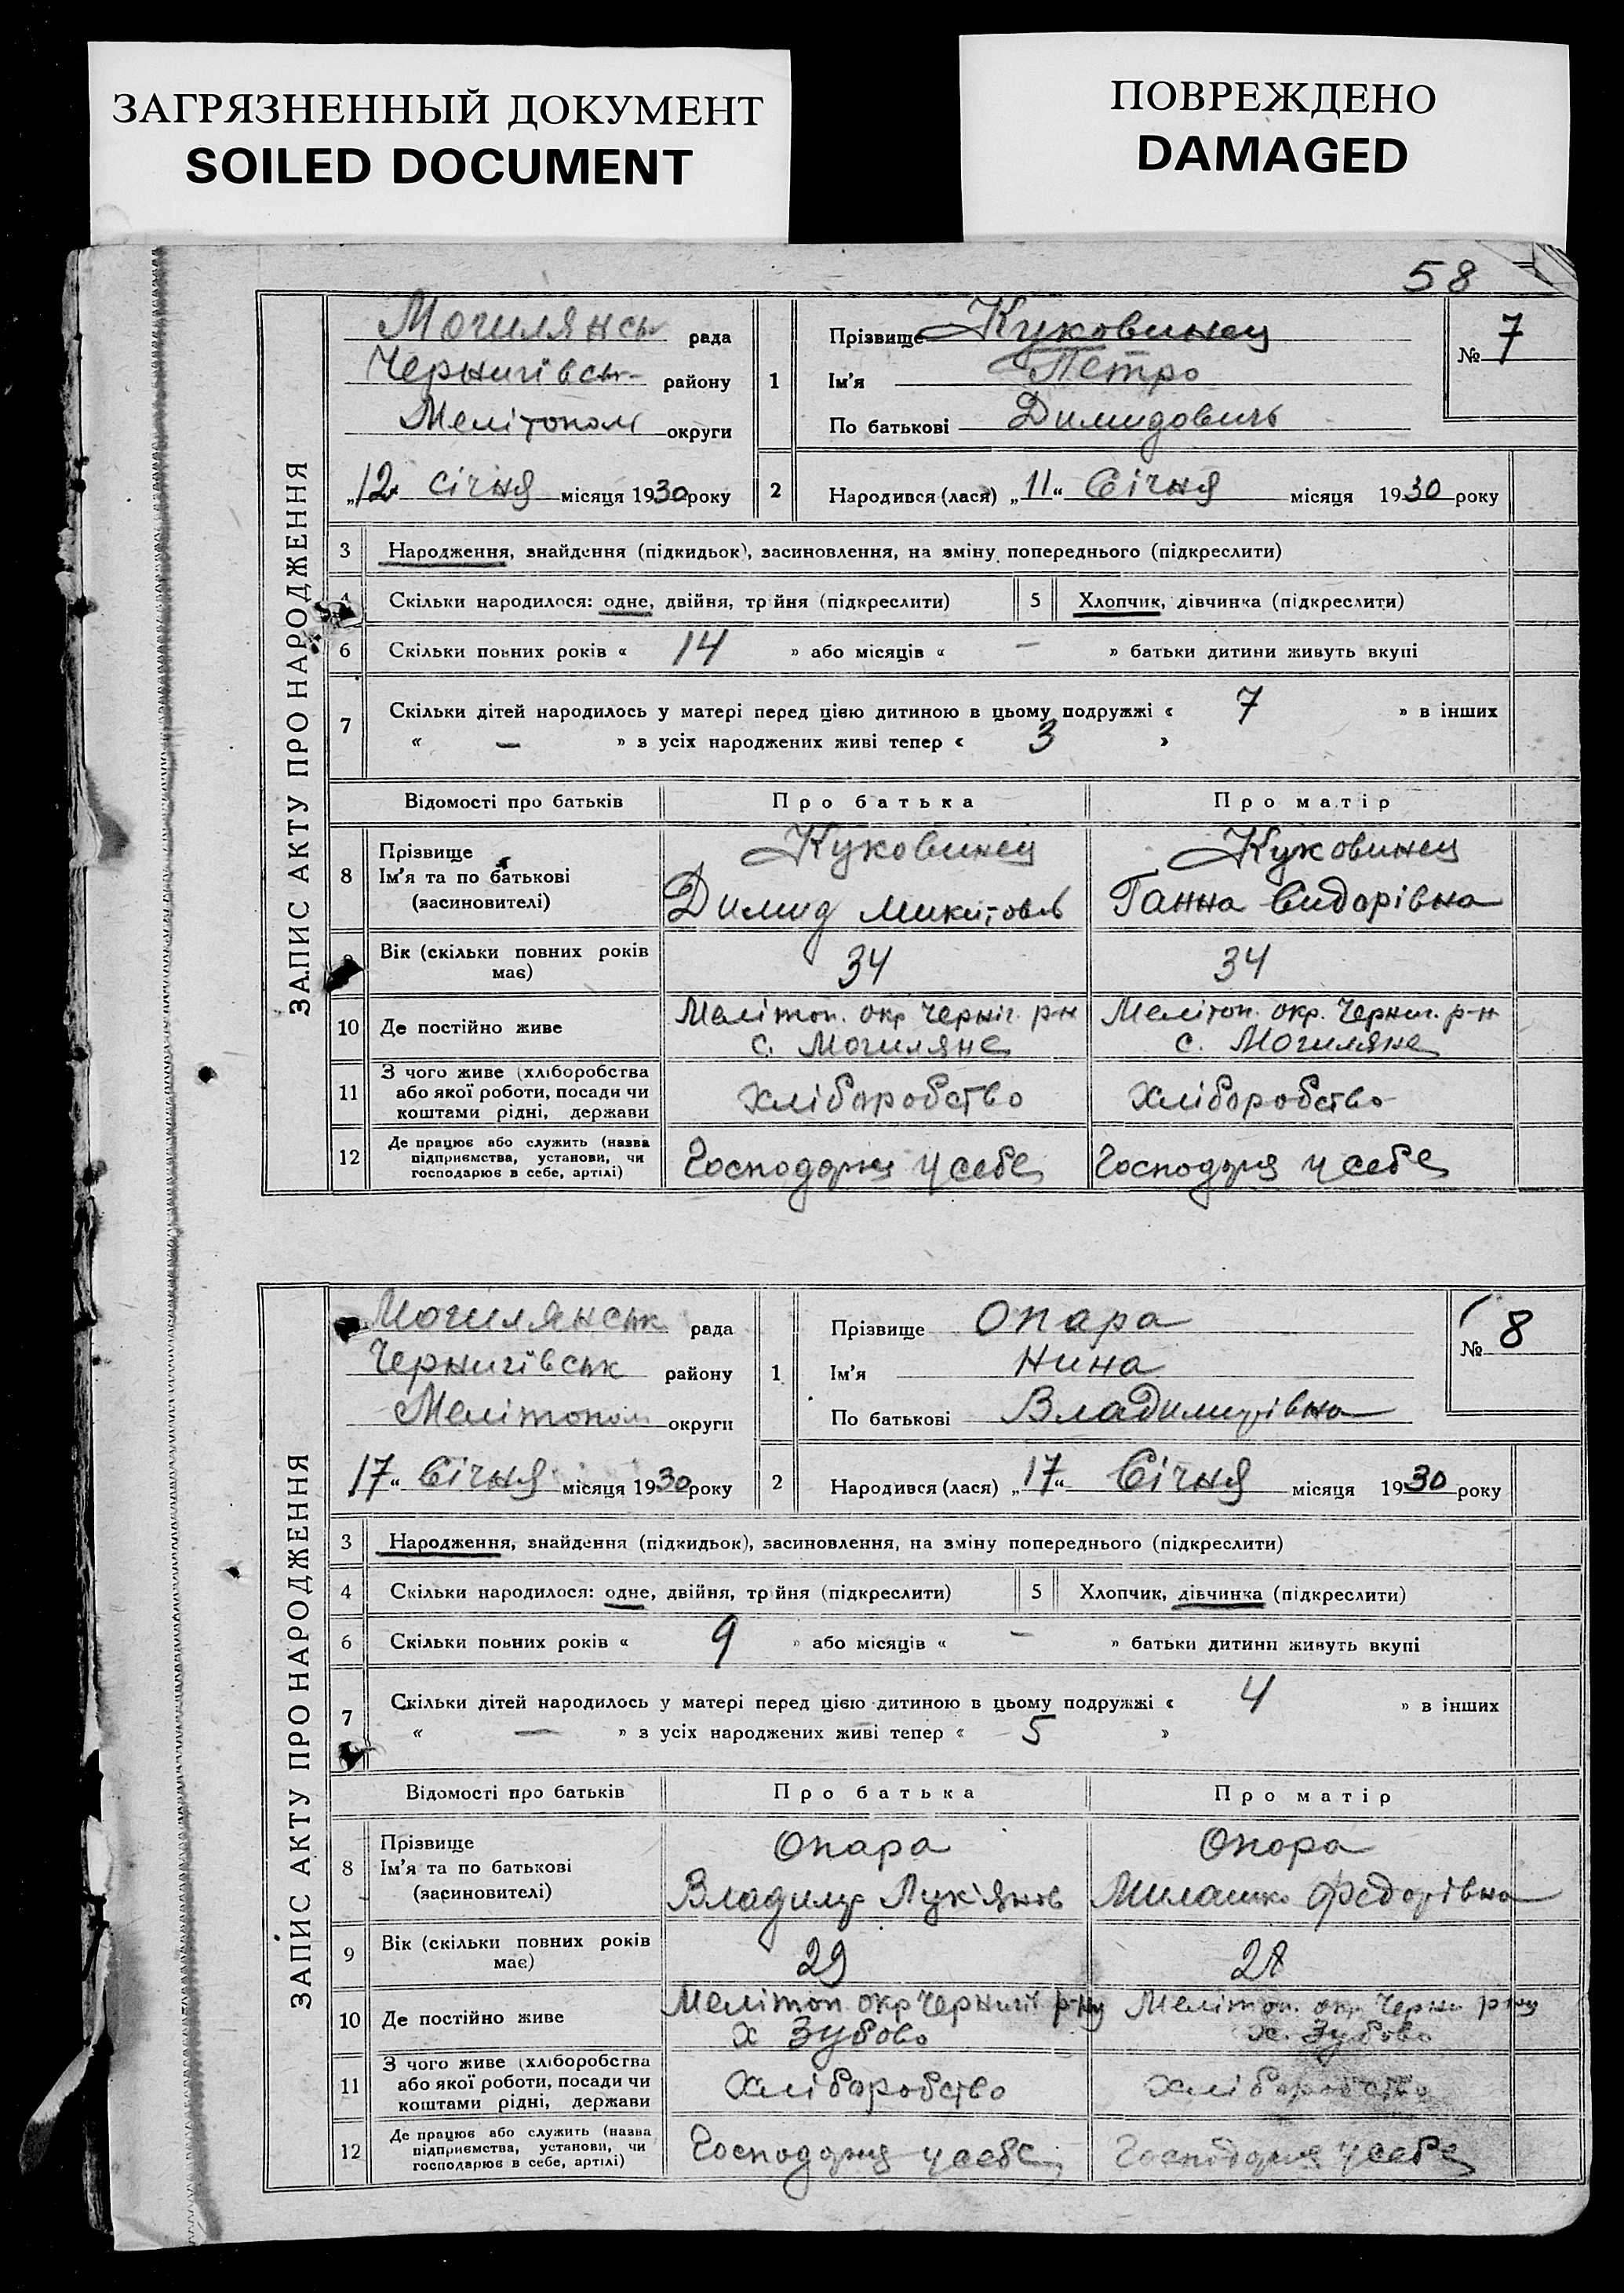 ЗАГРЯЗНЕННЫЙ ДОКУМЕНТ
SOILED DOCUMENT
ПОВРЕЖДЕНО
DAMAGED
58
ЗАПИС АКТУ ПРО НАРОДЖЕННЯ
Могилянськ рада
Чернигівськ району
Мелітополь округи
„12 січня місяця 1930 року
1 Прізвище Куковинец
Ім'я Петро
По батькові Димидовичь
№ 7
2 Народився (лася) „11“ Січня місяця 1930 року
3 Народження, знайдення (підкидьок), засиновлення, на зміну попереднього (підкреслити)
Скільки народилося: одне, двійня, трійня (підкреслити) 5 Хлопчик, дівчинка (підкреслити)
6 Скільки повних років « 14 » або місяців « — » батьки дитини живуть вкупі
7 Скільки дітей народилось у матері перед цією дитиною в цьому подружжі « 7 » в інших
« — » з усіх народжених живі тепер « 3 »
Відомості про батьків Про батька Про матір
8 Прізвище Куковинец Куковинец
Ім'я та по батькові (засиновителі) Димид Микитовъ Ганна Сидорівна
Вік (скільки повних років має) 34 34
10 Де постійно живе Мелітоп. окр Черніг. р-н Мелітоп. окр. Черниг. р-н
с. Могиляне с. Могиляне
11 З чого живе (хліборобства або якої роботи, посади чи коштами рідні, держави Хліборобство Хліборобство
12 Де працює або служить (назва підприємства, установи, чи господарює в себе, артілі) Господарює у себе Господарює у себе
ЗАПИС АКТУ ПРО НАРОДЖЕННЯ
Могилянськ рада
Чернигівськ району
Мелітополь округи
17“ Січня місяця 1930 року
1 Прізвище Опара
Ім'я Нина
По батькові Владимирівна
№ 8
2 Народився (лася) „17“ Січня місяця 1930 року
3 Народження, знайдення (підкидьок), засиновлення, на зміну попереднього (підкреслити)
4 Скільки народилося: одне, двійня, трійня (підкреслити) 5 Хлопчик, дівчинка (підкреслити)
6 Скільки повних років « 9 » або місяців « — » батьки дитини живуть вкупі
7 Скільки дітей народилось у матері перед цією дитиною в цьому подружжі « 4 » в інших
« — » з усіх народжених живі тепер « 5 »
Відомості про батьків Про батька Про матір
8 Прізвище Опара Опора
Ім'я та по батькові (засиновителі) Владимир Лук'янов Милашка Федорівна
9 Вік (скільки повних років має) 29 28
10 Де постійно живе Мелітоп окр Чернигі р-ну Мелітоп. окр. Черни р-ну
х Зубово х. Зубово
11 З чого живе (хліборобства або якої роботи, посади чи коштами рідні, держави Хліборобство Хліборобство
12 Де працює або служить (назва підприємства, установи, чи господарює в себе, артілі) Господарює у себе Господарює у себе